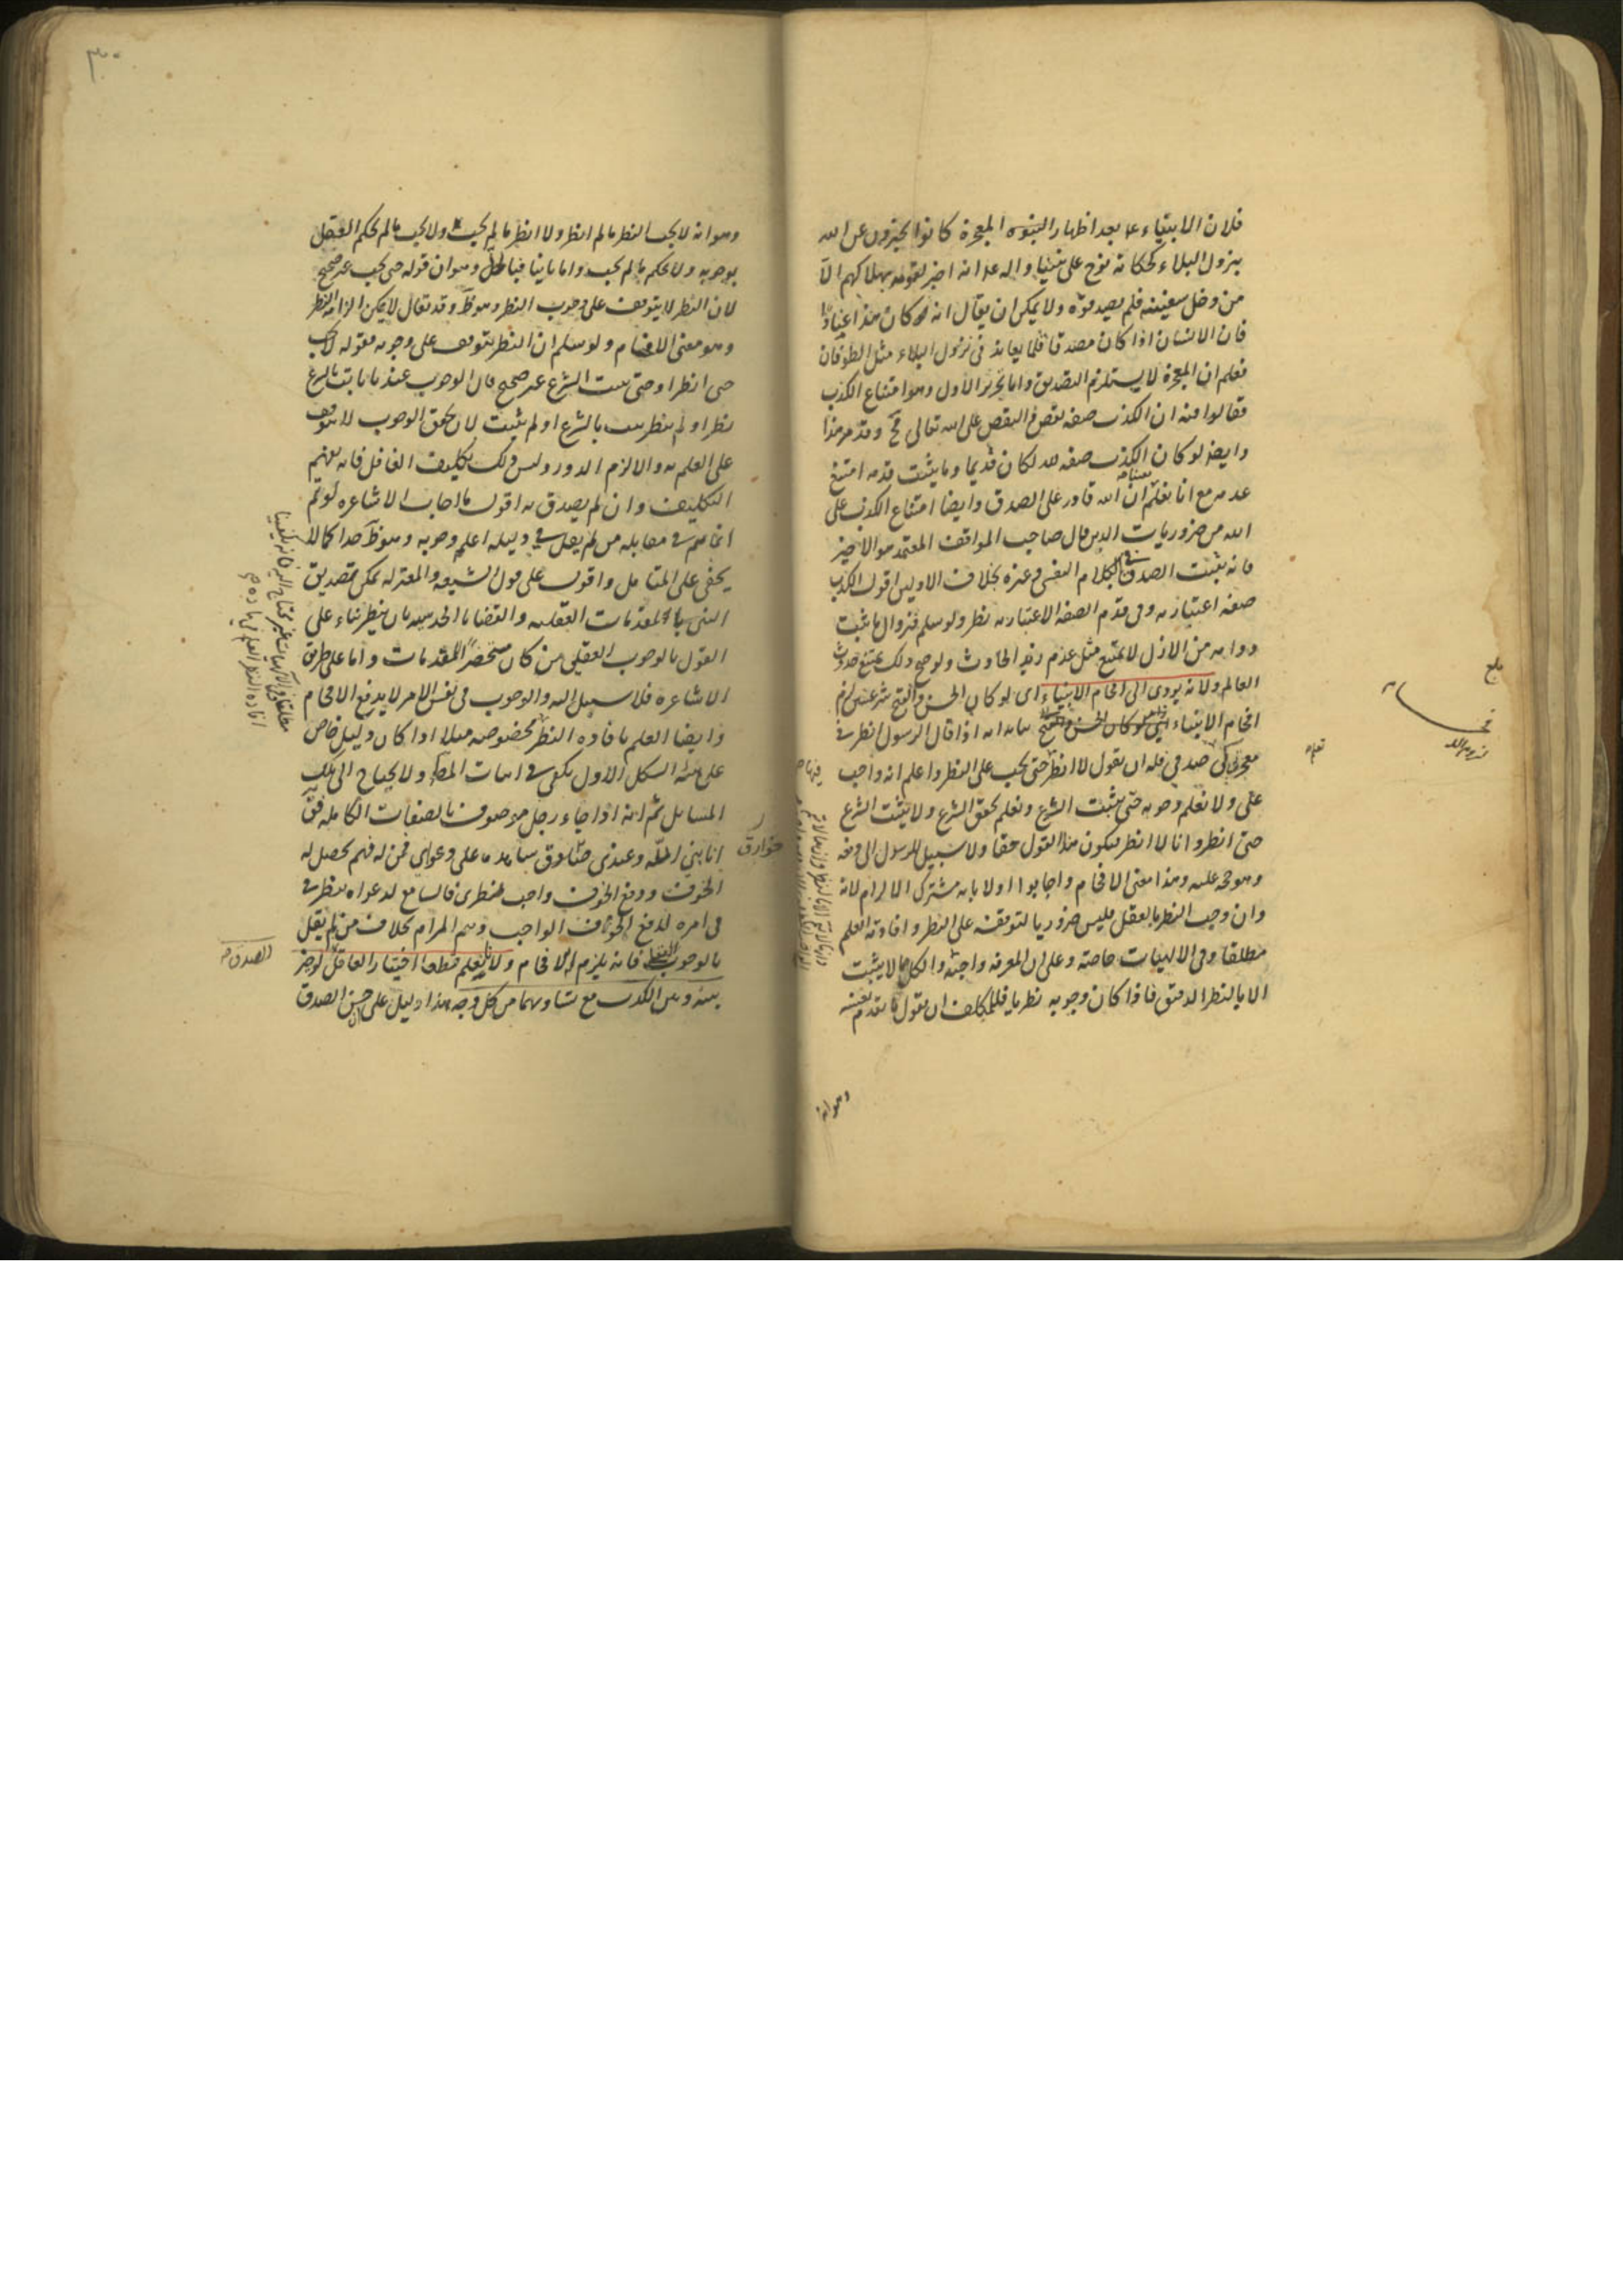 فلان الانبياء ع بعد اظهار النبوه المعجزة كانوا يخبرون عن الله
بنزول البلاء كحكاية نوح على نبينا واله وع انه اخبر لقومه بهلاكهم الا
من دخل سفينته فلم يصدقوه ولا يمكن ان يقال انه كان هذا عنادا
فان الانسان اذا كان مصدقا فلما يعاند فى نزول البلاء مثل الطوفان
فعلم ان المعجزة لا يستلزم التصديق واما تحرير الاول وهو امتناع الكذب
فقالوا منه ان الكذب صفه نقص والنقص على الله تعالى مح وقد مر هذا
وايضا لو كان الكذب صفه له لكان قديما وما يثبت قدمه امتنع
عدمه مع انا نعلم ان الله قادر على الصدق وايضا امتناع الكذب على
الله من ضروريات الدين قال صاحب المواقف المعتمد هو الاخير
فانه يثبت الصدق فى الكلام النفسى وغيره بخلاف الاوليين اقول الكذب
صفه اعتباريه وفى قدم الصفه الاعتباريه نظر ولو سلم فزوال ما ثبت
دوامه من الازل لا يمتنع مثل عدم زيد الحادث ولو صح ذلك يمتنع حدوث
العالم ولانه يودى الى افحام الانبياء اى لو كان الحسن والقبح شرعيين لزم
افحام الانبياء بيانه انه اذا قال الرسول انظر فى
معجزتى كى صدقى فله ان يقول لا انظر حتى يجب على النظر واعلم انه واجب
على ولا نعلم وجوبه حتى يثبت الشرع ونعلم تحقق الشرع ولا يثبت الشرع
حتى انظر وانا لا انظر فيكون هذا القول حقا ولا سبيل للرسول الى دفعه
وهو حجه عليه وهذا معنى الافحام واجابوا اولا بانه مشترك الالزام لانه
وان وجب النظر بالعقل فليس ضروريا لتوقفه على النظر وافادته العلم
مطلقا وفى الالهيات خاصة وعلى ان المعرفه واجبة والكل مما لا يثبت
الا بالنظر الدقيق فاذا كان وجوبه نظريا فللمكلف ان يقول ما تقدم بعينه
وهو انه
وهو انه لا يجب النظر ما لم انظر ولا انظر ما لم يجب ولا يجب ما لم يحكم العقل
بوجوبه ولا يحكم ما لم يجب واما ثانيا فبالحل وهو ان قوله حتى يجب غير صحيح
لان النظر لا يتوقف على وجوب النظر وهو ظ وقد يقال لا يمكن الزامه النظر
وهو معنى الافحام ولو سلم ان النظر يتوقف على وجوبه فقوله لا يجب
حتى انظر او حتى يثبت الشرع غير صحيح فان الوجوب عندنا ثابت بالشرع
نظر او لم ينظر ثبت بالشرع او لم يثبت لان تحقق الوجوب لا يتوقف
على العلم به والا لزم الدور وليس ذلك تكليف الغافل فانه يفهم
التكليف وان لم يصدق به اقول ما اجاب الاشاعره لو تم
انما يتم فى مقابله من لم يقل فى دليله اعلم وجوبه وهو ظ جدا كما لا
يخفى على المتامل واقول على قول الشيعه والمعتزله يمكن تصديق
النبى بالمقدمات العقليه والقضايا الحدسيه بان ينظر بناء على
القول بالوجوب العقلى من كان مستحضرا للمقدمات واما على طريق
الاشاعره فلا سبيل اليه والوجوب فى نفس الامر لا يدفع الافحام
وايضا العلم بافاده النظر بخصوصه مثلا اذا كان دليل خاص
على هيئه الشكل الاول يكفى فى اثبات المط ولا يحتاج الى تلك
المسائل ثم انه اذا جاء رجل موصوف بالصفات الكامله فق
انا بنى الله وعندى خوارق شاهده على دعواى فمن له فهم يحصل له
الخوف ودفع الخوف واجب فطرى فالسامع لدعواه ينظر فى
فى امره لدفع الخوف الواجب ويتم المرام بخلاف من لم يقل
بالوجوب العقلى فانه يلزم الافحام ولانا نعلم قطعا اختيار العاقل لو خير
بينه وبين الكذب مع تساويهما من كل وجه هذا دليل على حسن الصدق
خوارق
الصدق